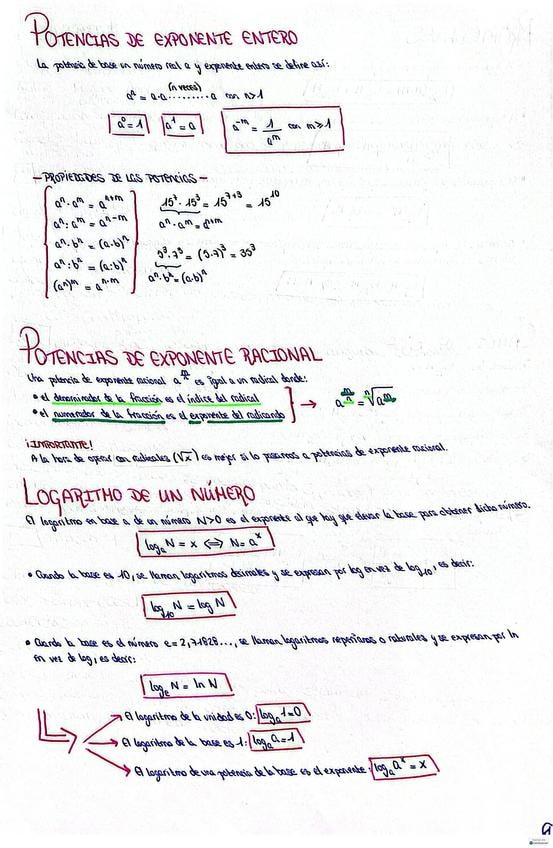 POTENCIAS DE EXPONENTE ENTERO
La potencia de base un número real a y exponente entero se define así:
(n veces)
aⁿ = a·a·········a con n>1
a⁰=1 a¹=a a⁻ᵐ = 1/aᵐ con m≥1
—PROPIEDADES DE LAS POTENCIAS—
aⁿ·aᵐ = aⁿ⁺ᵐ 15⁷·15³ = 15⁷⁺³ = 15¹⁰
aⁿ:aᵐ = aⁿ⁻ᵐ aⁿ·aᵐ = aⁿ⁺ᵐ
aⁿ·bⁿ = (a·b)ⁿ 5³·7³ = (5·7)³ = 35³
aⁿ:bⁿ = (a:b)ⁿ aⁿ·bⁿ = (a·b)ⁿ
(aⁿ)ᵐ = aⁿ·ᵐ
POTENCIAS DE EXPONENTE RACIONAL
Una potencia de exponente racional a^(m/n) es igual a un radical donde:
• el denominador de la fracción es el índice del radical
• el numerador de la fracción es el exponente del radicando → a^(m/n) = ⁿ√aᵐ
¡IMPORTANTE!
A la hora de operar con radicales (√x) es mejor si lo pasamos a potencias de exponente racional.
LOGARITMO DE UN NÚMERO
El logaritmo en base a de un número N>0 es el exponente al que hay que elevar la base para obtener dicho número.
logₐ N = x ⇔ N = aˣ
• Cuando la base es 10, se llaman logaritmos decimales y se expresan por log en vez de log₁₀, es decir:
log₁₀ N = log N
• Cuando la base es el número e = 2,71828..., se llaman logaritmos neperianos o naturales y se expresan por ln
en vez de log, es decir:
logₑ N = ln N
El logaritmo de la unidad es 0: logₐ 1 = 0
El logaritmo de la base es 1: logₐ a = 1
El logaritmo de una potencia de la base es el exponente: logₐ aˣ = x